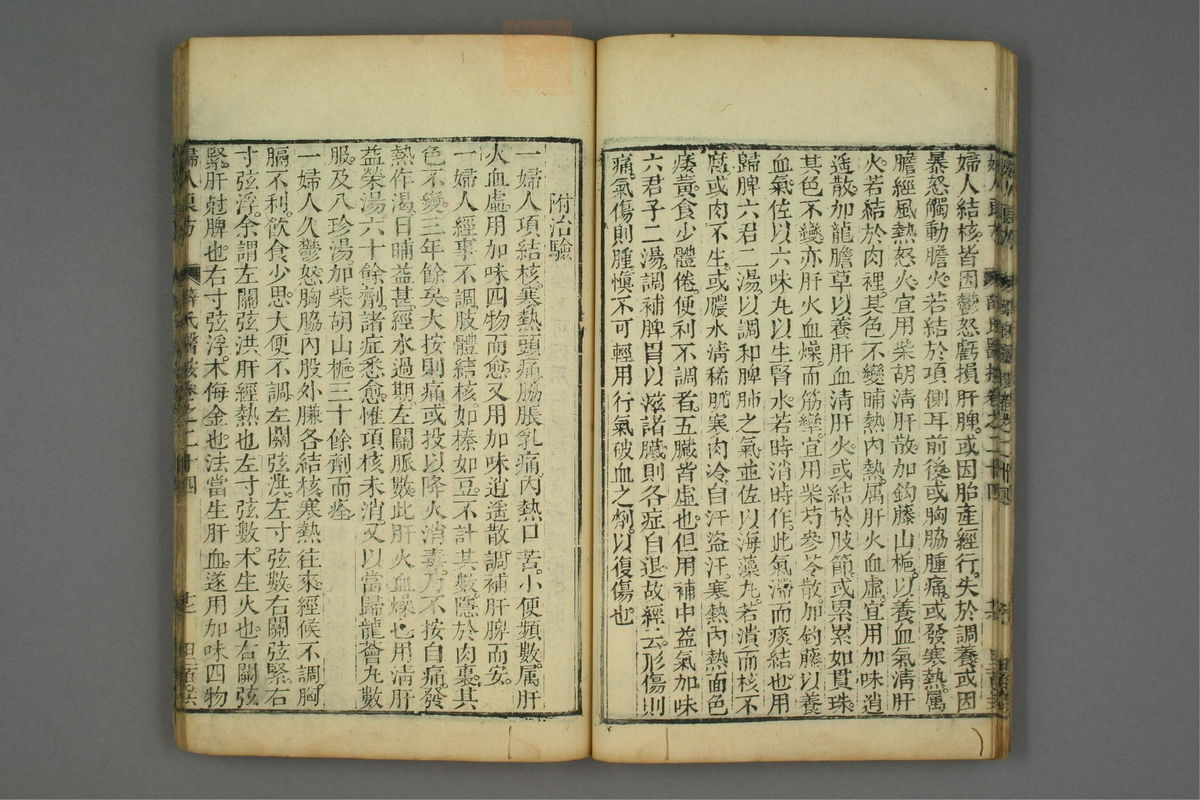 婦人良方
薛氏醫按卷之二十四
婦人結核皆因鬱怒虧損肝脾或因胎産經行失於調養或因
暴怒觸動膽火若結於項側耳前後或胸脇腫痛或發寒熱属
膽經風熱怒火宜用柴胡清肝散加鈎藤山梔以養血氣清肝
火若結於肉裡其色不變晡熱內熱属肝火血虛宜用加味逍
遥散加龍膽草以養肝血清肝火或結於肢節或累累如貫珠
其色不變亦肝火血燥而筋攣宜用柴芍參苓散加鈎藤以養
血氣佐以六味丸以生腎水若時消時作此氣滯而痰結也用
歸脾六君二湯以調和脾肺之氣並佐以海藻丸若潰而核不
腐或肉不生或膿水清稀肌寒肉冷自汗盗汗寒熱內熱面色
痿黃食少體倦便利不調者五臟皆虛也但用補中益氣加味
六君子二湯調補脾胃以滋諸臟則各症自退故經云形傷則
痛氣傷則腫愼不可輕用行氣破血之劑以復傷也
附治驗
一婦人項結核寒熱頭痛脇脹乳痛內熱口苦小便頻數属肝
火血虛用加味四物而愈又用加味逍遥散調補肝脾而安
一婦人經事不調肢體結核如榛如豆不計其數隱於肉裏其
色不變三年餘矣大按則痛或投以降火消毒乃不按自痛發
熱作渴日晡益甚經水過期左關脈數此肝火血燥也用清肝
益榮湯六十餘劑諸症悉愈惟項核未消又以當歸龍薈丸數
服及八珍湯加柴胡山梔三十餘劑而痊
一婦人久鬱怒胸脇內股外臁各結核寒熱往來經候不調胸
膈不利飲食少思大便不調左關弦洪左寸弦數右關弦緊右
寸弦浮余謂左關弦洪肝經熱也左寸弦數木生火也右關弦
緊肝尅脾也右寸弦浮木侮金也法當生肝血遂用加味四物
婦人良方
薛氏醫按卷之二十四